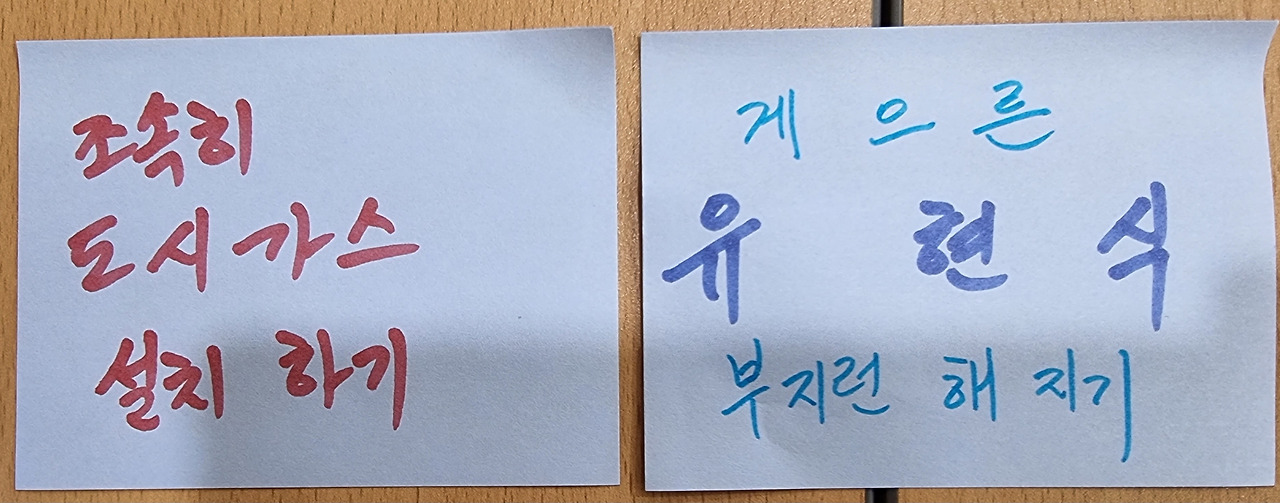 조속히
도시가스
설치 하기
게 으 른
유 현 식
부지런 해 지기